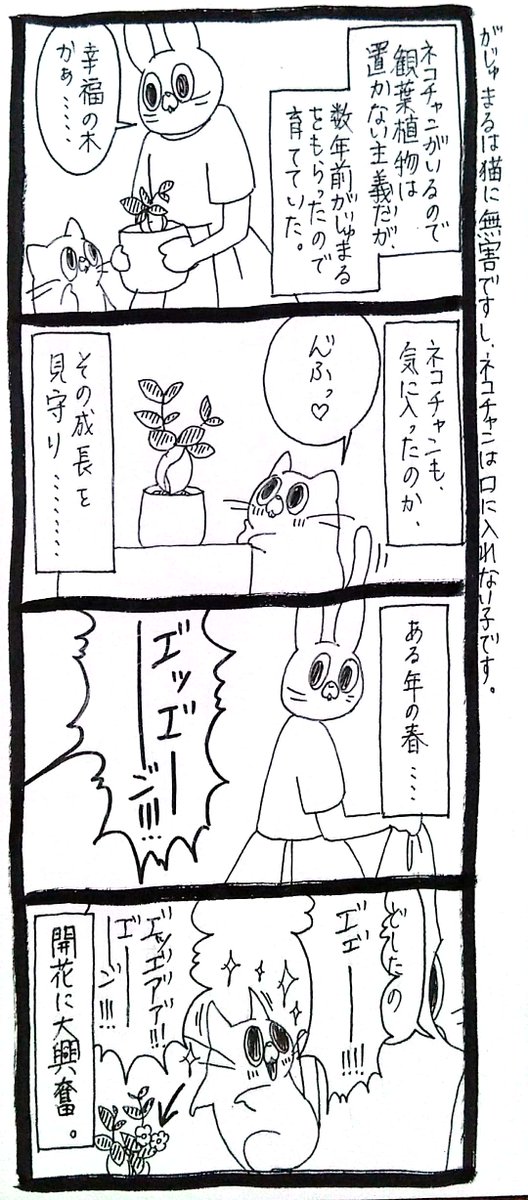 がじゅまるは猫に無害ですし、ネコチャンは口に入れない子です。
ネコチャンがいるので
観葉植物は
置かない主義だが、
数年前がじゅまる
をもらったので
育てていた。
幸福の木
かぁ……
ネコチャンも、
気に入ったのか、
んふっ♡
その成長を
見守り………
ある年の春……
エッエーーージ!!!
どしたの
エエーー!!!!
エッエアア!!!
エーージ!!!
開花に大興奮。